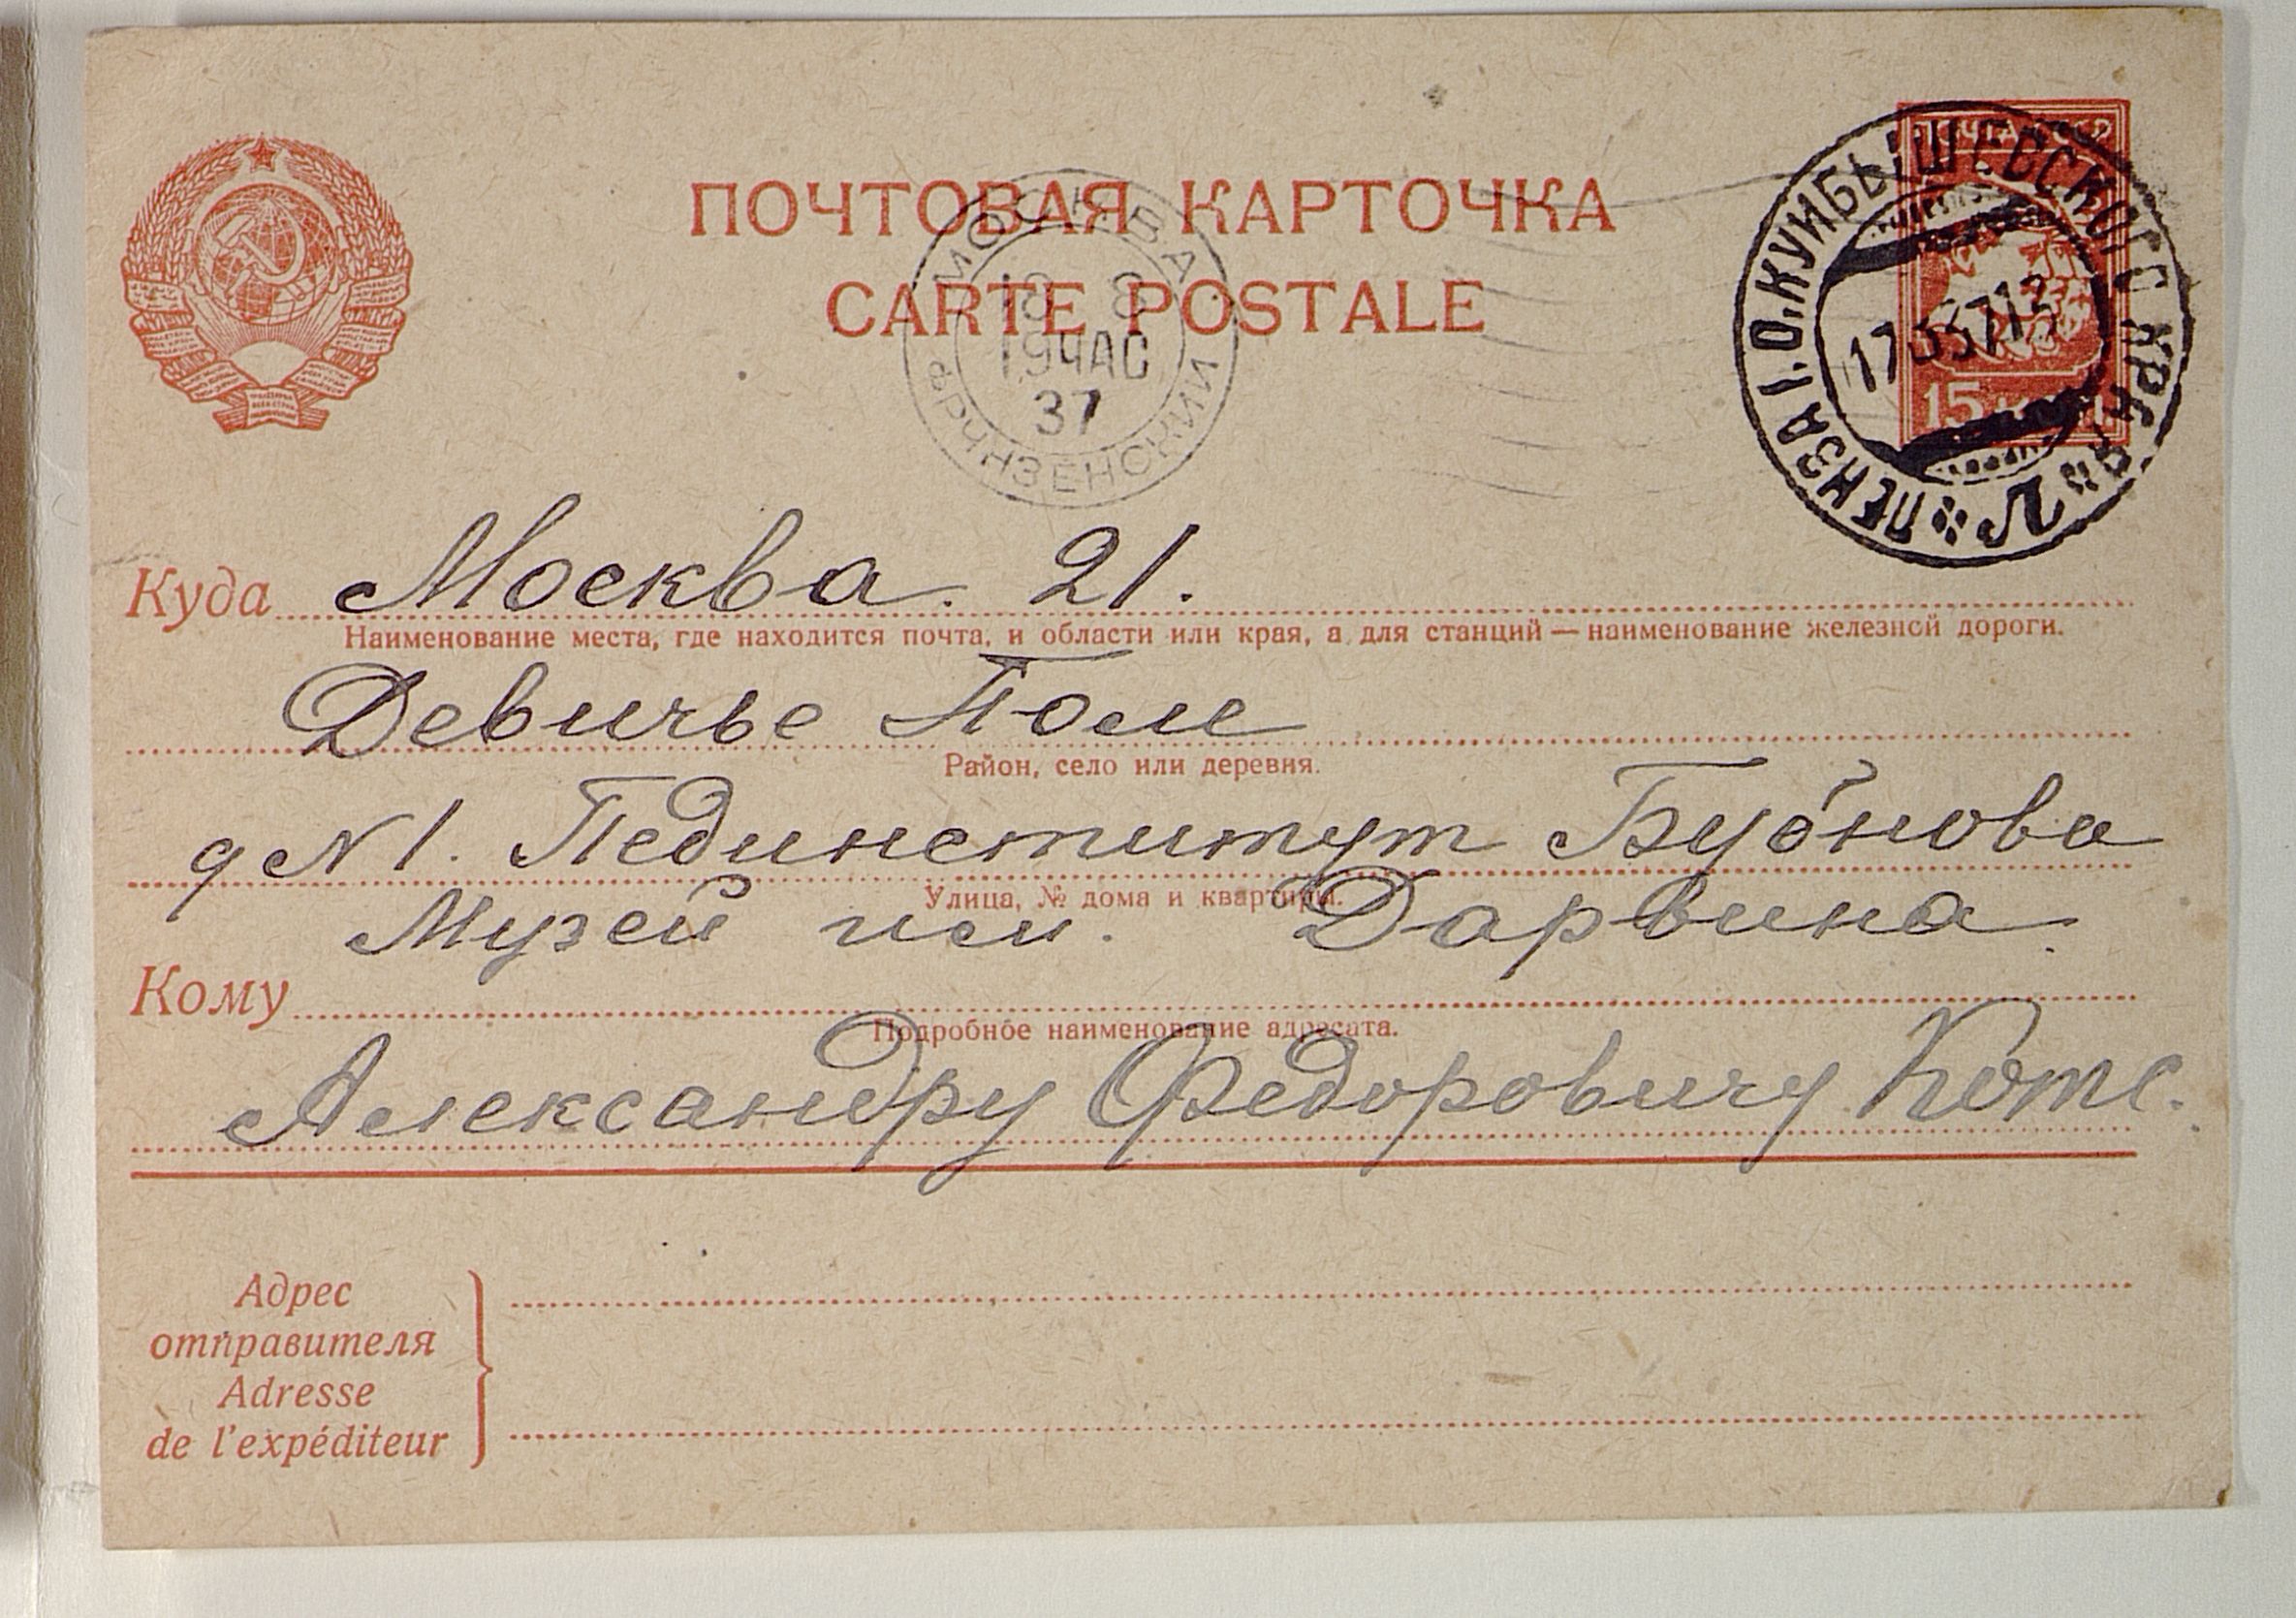 ПОЧТОВАЯ КАРТОЧКА
CARTE POSTALE
ПОЧТА СССР
15 К
ПЕНЗА 1. О. КУЙБЫШЕВСКОГО КРАЯ
17 37 12
Л
МОСКВА
18 8
19 ЧАС
37
ФРУНЗЕНСКИЙ
Куда Москва. 21.
Наименование места, где находится почта, и области или края, а для станций — наименование железной дороги.
Девичье Поле
Район, село или деревня.
д N 1. Пединститут Бубнова
Улица, № дома и квартиры.
Музей им. Дарвина.
Кому
Подробное наименование адресата.
Александру Федоровичу Котс.
Адрес
отправителя
Adresse
de l'expéditeur